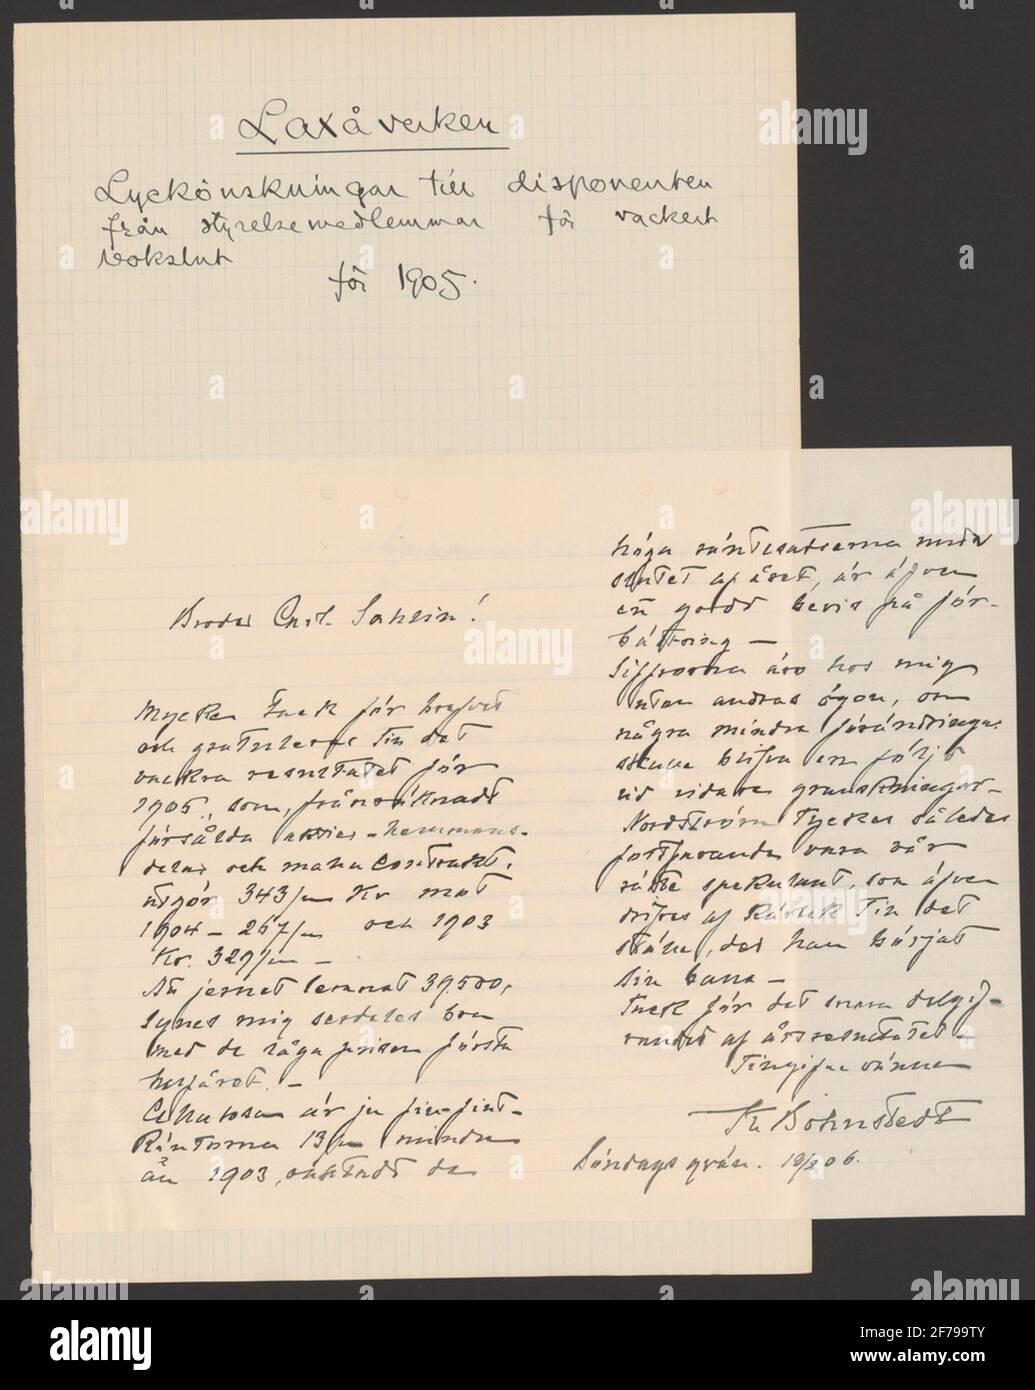 Laxåverken
Lyckönskningar till disponenten
från styrelsemedlemmar för vackert
bokslut
för 1905.
Broder Carl Sahlin!
Mycken tack för brefvet
och gratulerar till det
vackra resultatet för
1905, som, frånräknadt
försålda aktier - hemmans-
delar och maha Contrakt,
utgör 343/m Kr mot
1904 - 267/m och 1903
Kr. 329/m -
Att jernet lemnat 39.500,
synes mig serdeles bra
med de låga prisen första
halfåret. -
Cellulosan är ju fin-fint -
Räntorna 13/m mindre
än 1903, oaktadt de
höga räntesatserna mot
slutet af året, är äfven
ett godt bevis på för-
bättring -
Siffrorna äro hos mig
utan andras ögon, om
några mindre förändringar
skulle blifva en följd
vid vidare granskningar -
Nordström tycker således
fortfarande vara vår
rätte spekulant, som äfven
drifves af kärlek till det
ställe, der han börjat
sin bana -
Tack för det snara delgif-
vandet af årsresultatet -
Tillgifne vännen
Th Bohnstedt
Söndags qväll. 18/2 06.
alamy
Image ID: 2F799TY
www.alamy.com